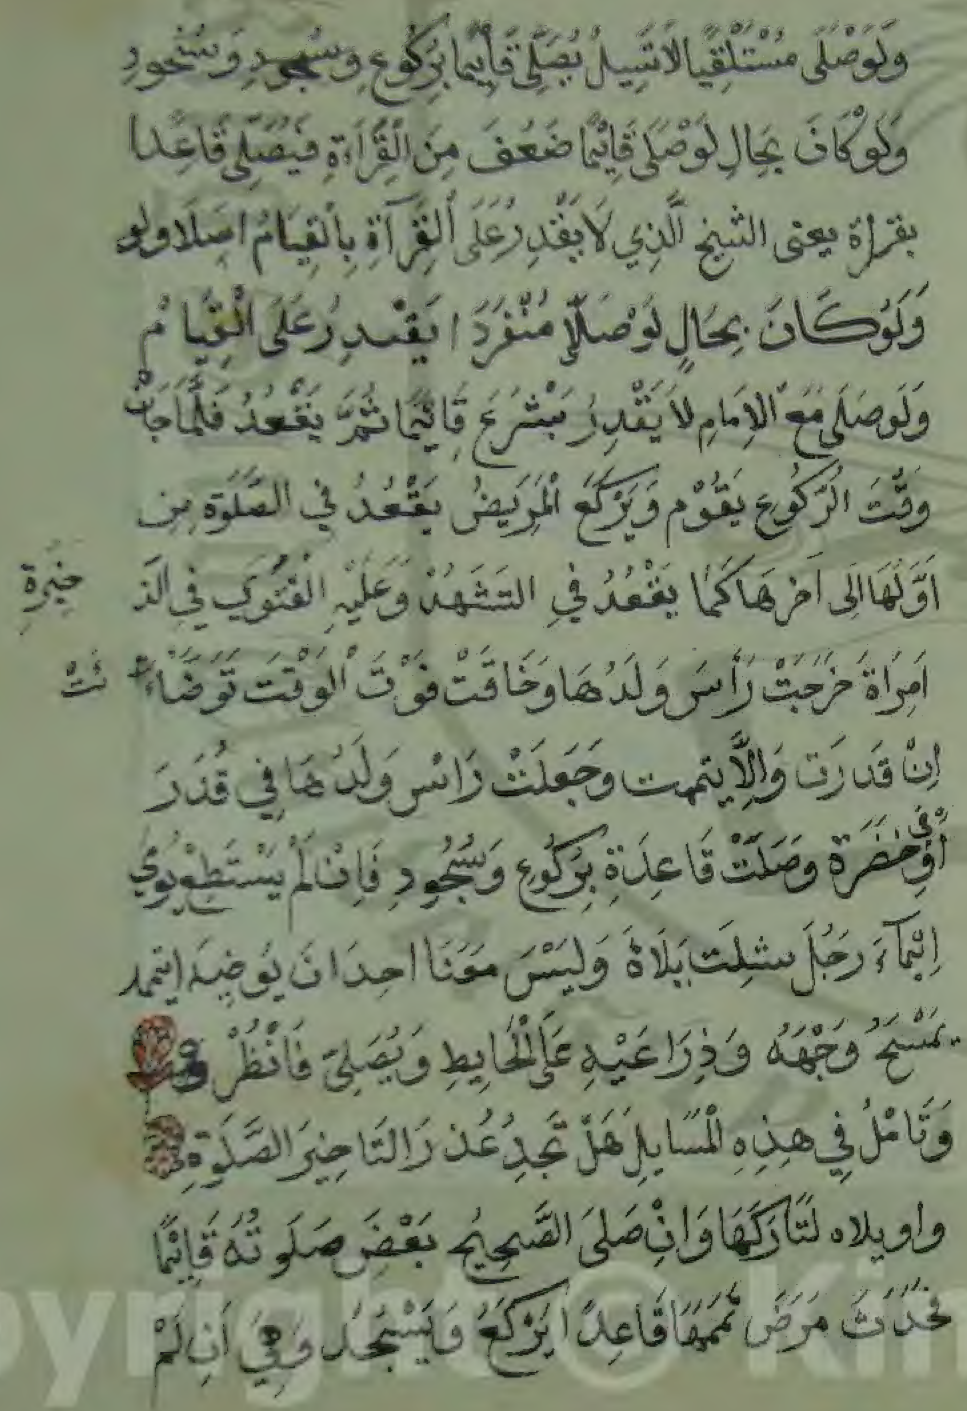 وَلَوْصَلَّى مُسْتَلْقِيًا لَا تَسِيلُ يُصَلِّي قَائِمًا بِرُكُوعٍ وَسُجُودٍ وَسُجُودٍ
وَلَوْكَانَ بِحَالِ لَوْصَلَى قَائِمًا ضَعُفَ مِنَ الْقِرَاءَةِ فَيُصَلِّي قَاعِدًا
بقراة يعنى الشيخ الَّذِي لَا يَقْدِرُ عَلَى الْقِرَآةِ بِالْقِيَامِ اصلا ولو
وَلَوْكَانَ بِحَالٍ لَوْ صَلَّا مُنْفَرِدًا يَقْدِرُ عَلَى الْقِيَامُ
وَلَوصَلَى مَعَ الاِمَامِ لاَ يَقْدِرُ يَشْرَعَ قَائِمًا ثُمَّ يَقْعُدُ فَلَمَّا جَانْ
وَقْتَ الرُّكُوعِ يَقُوْم وَيَرْكَعَ الْمَرِيضُ يَقْعُدُ في الصَّلَوة مِن
اَوَّلُهَا اِلَى اَخرهَا كَمَا يَقْعُدُ فِي التَّشَهُدْ وَعَلَيْهِ الْفَتْوَي فِي الذ
خِيرَةِ
اَمِرَاة خَرَجَتْ رَأسَ وَلَدُهَا وَخَافَتْ فَوْتَ الْوَقْتَ تَوَضَاءَ
تْ
اِنْ قَدرَت وَاِلَّا يتممت وَجَعلَتْ رَاس وَلَدُهَا فِي قُدَرَ
أَوْفِي حَضرَة وَصَلَتْ قَاعِدَة بِرَكُوع وَسُجُودِ فَاِنْ لَمْ يَسْتَطِع يُومِي
اِيْمآءَ رَجُلَ شلتَ يَدَاهُ وَلَيْسَ مَعَنَا احدَانَ يُوَضِيهَ ايتمه
يَمْسَحُ وَجْهَهُ وَذِرَاعَيْهِ عَلَى الْحَايِطِ وَيُصَلِىّ فَانْظُرْ
وَتَامَلُ فِي هذِهِ الْمَسَايلِ هَلْ تَجِدِ عُذرَ التَاخِيرَ الصَّلَوةِ
واويلاه لتَارِكَهَا وَاِنْ صَلىَ الصَّحِيحُ بَعْضَ صَلَوتُهُ قَائِمًا
فحَدَثَ مَرَضَ تَممهَا قَاعِدًا يَرْكَعُ وَيَسْجُدُ وَفِي اَن لَمْ